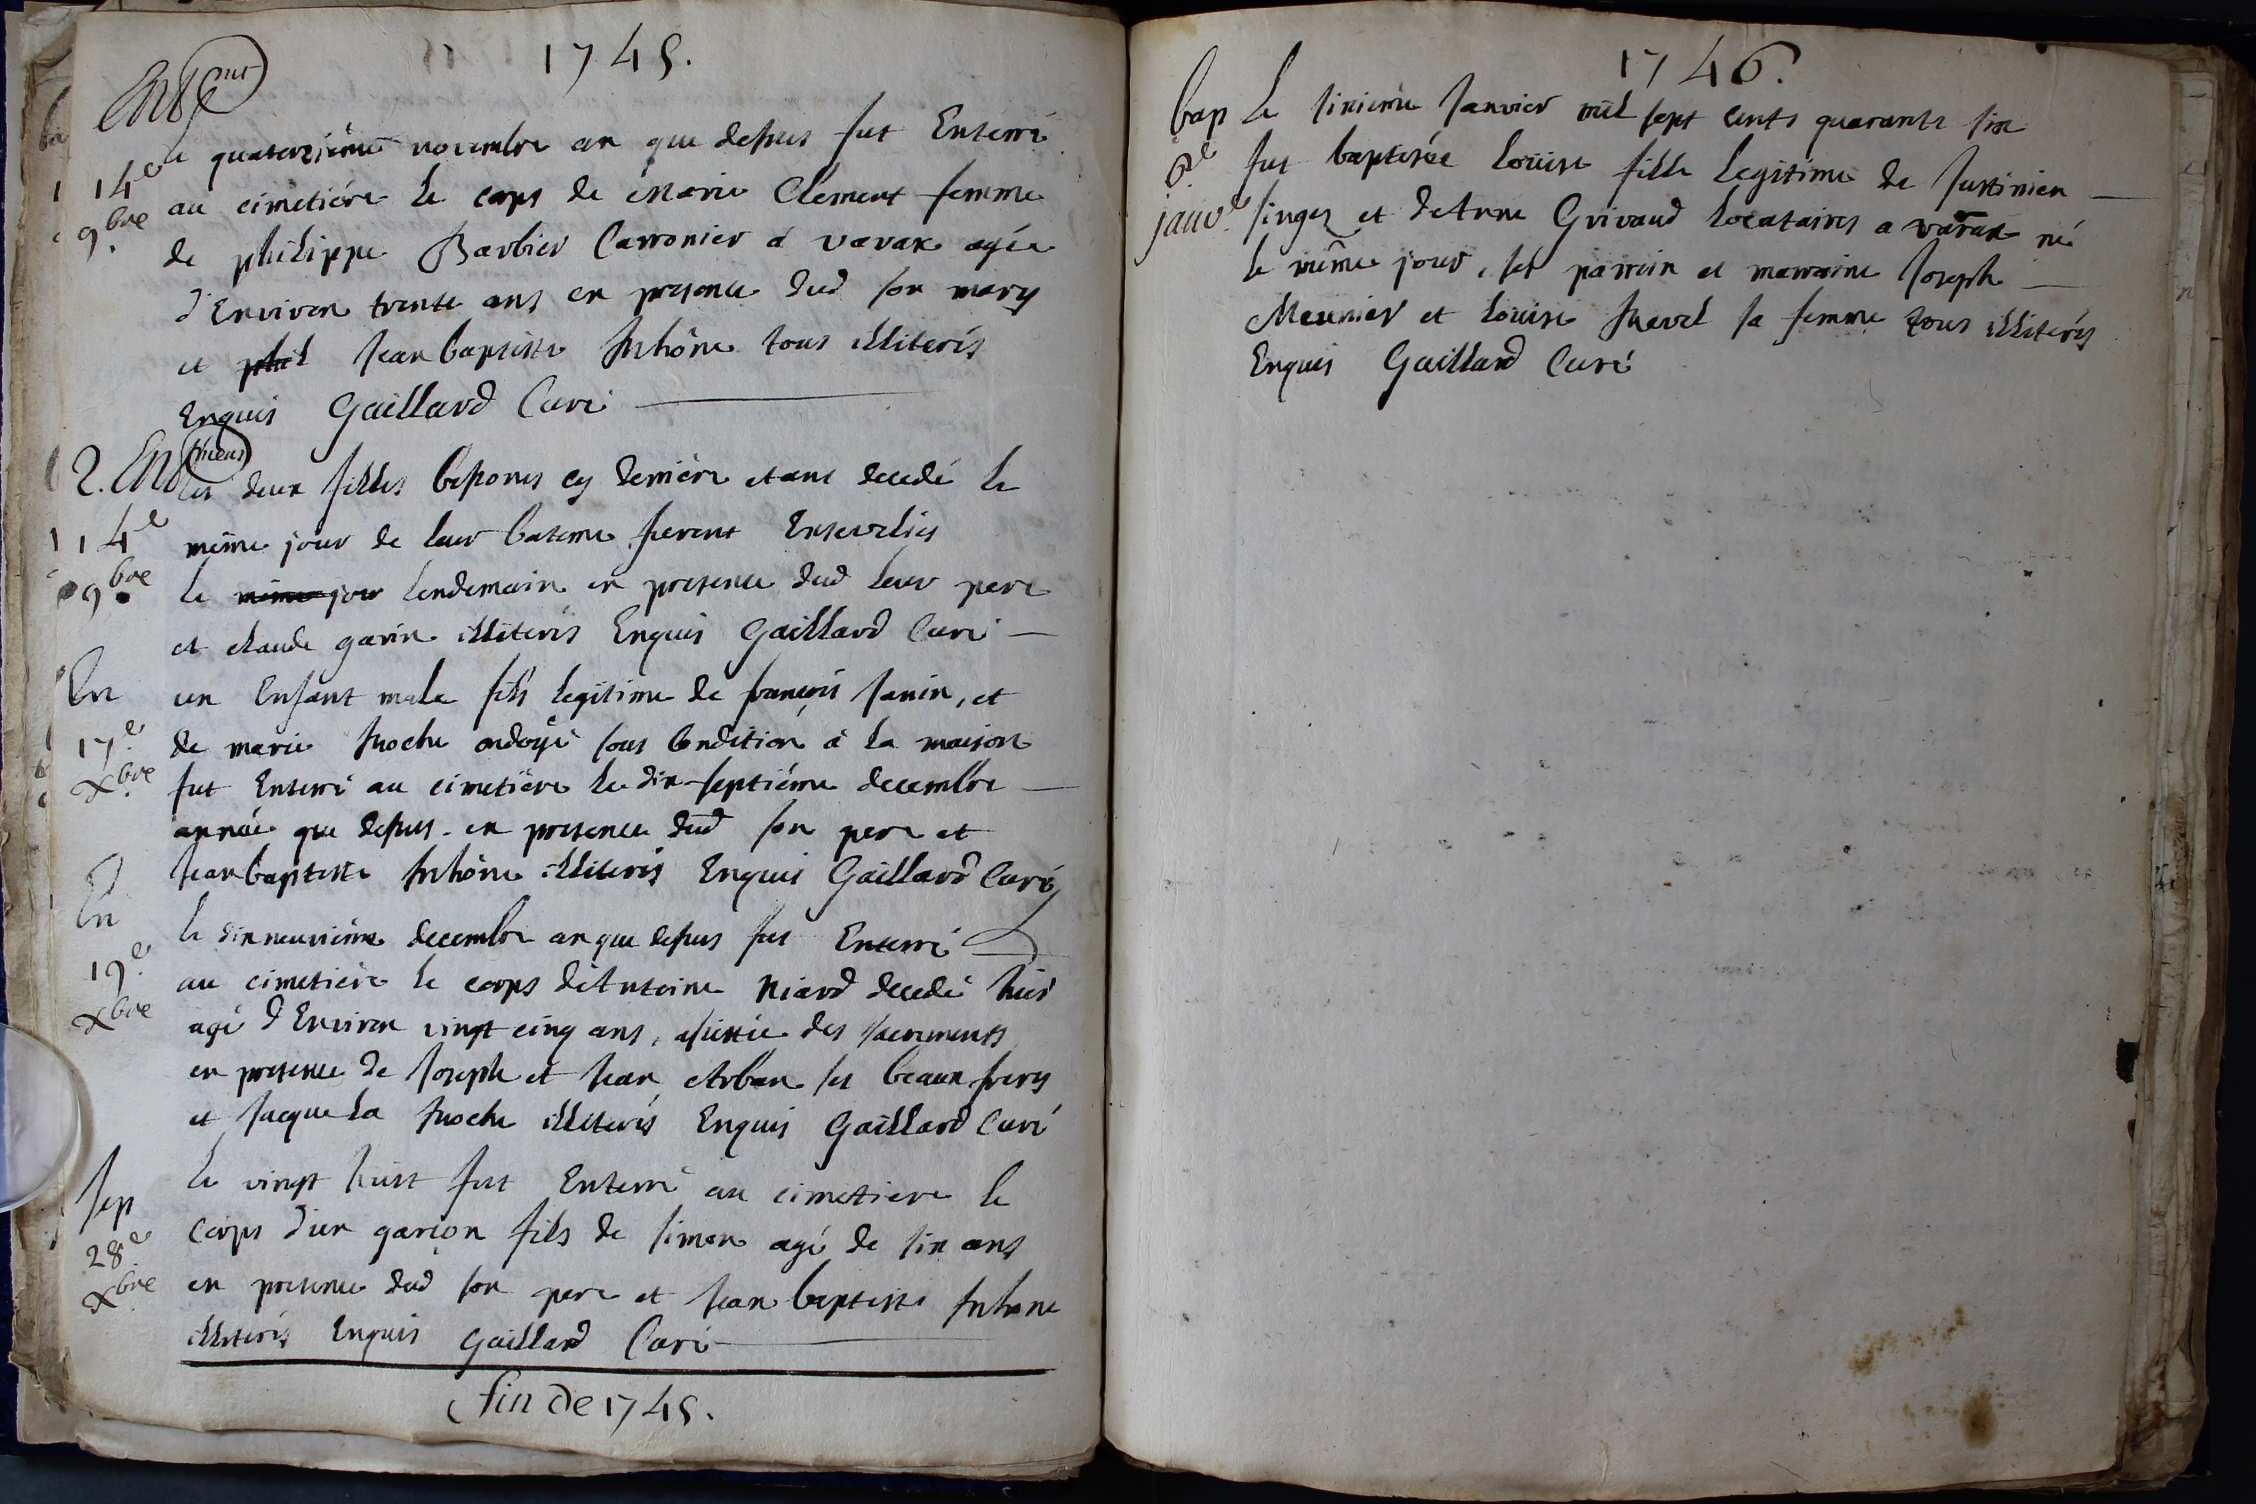 1745.
Ent.ment
le quatorzième novembre an que dessus fut Enterré
14e
au cimetière le corps de Marie Clement femme
9bre
de philippe Barbier Carronier a varax agée
d'Environ trente ans en presence dud son mary
et phil Jean baptiste Inhône tous illiterés
Enquis Gaillard Curé
2. Ent.mens
les deux filles besones cy derrière etant decedé le
14e
même jour de leur bateme furent Ensevelies
9bre
le même jour lendemain en presence dud leur pere
et claude garin illiterés Enquis Gaillard Curé
En
un Enfant male fils legitime de françois Janin, et
17e
de marie Buoche ondoyé sous Condition à la maison
xbre
fut Enterré au cimetière le dix-septiéme decembre
année que dessus en presence dud son pere et
Jean baptiste Inhône illiterés Enquis Gaillard Curé
En
le dix neuvieme decembre an que dessus fut Enterré
19e
au cimetière le corps d'Antoine Niard decedé hier
xbre
agé d'Environ vingt cinq ans, assistée des sacrements
en presence de Joseph et Jean Arban ses beaux freres
et Jacque La Buoche illiterés Enquis Gaillard Curé
Sep
le vingt huit fut Enterré au cimetiere le
28e
corps d'un garçon fils de simon agé de six ans
xbre
en presence dud son pere et Jean baptiste Inhone
illiterés Enquis Gaillard Curé
fin de 1745.
1746.
bap le sixieme Janvier mil sept cents quarante six
6e
fut baptisée Loüise fille Legitime de Justinien
janv.
singez et d'Anne Grivaud Locataires a varax né
le même jour, ses parrein et marraine Joseph
Meunier et Loüise sa femme tous illiterés
Enquis Gaillard Curé